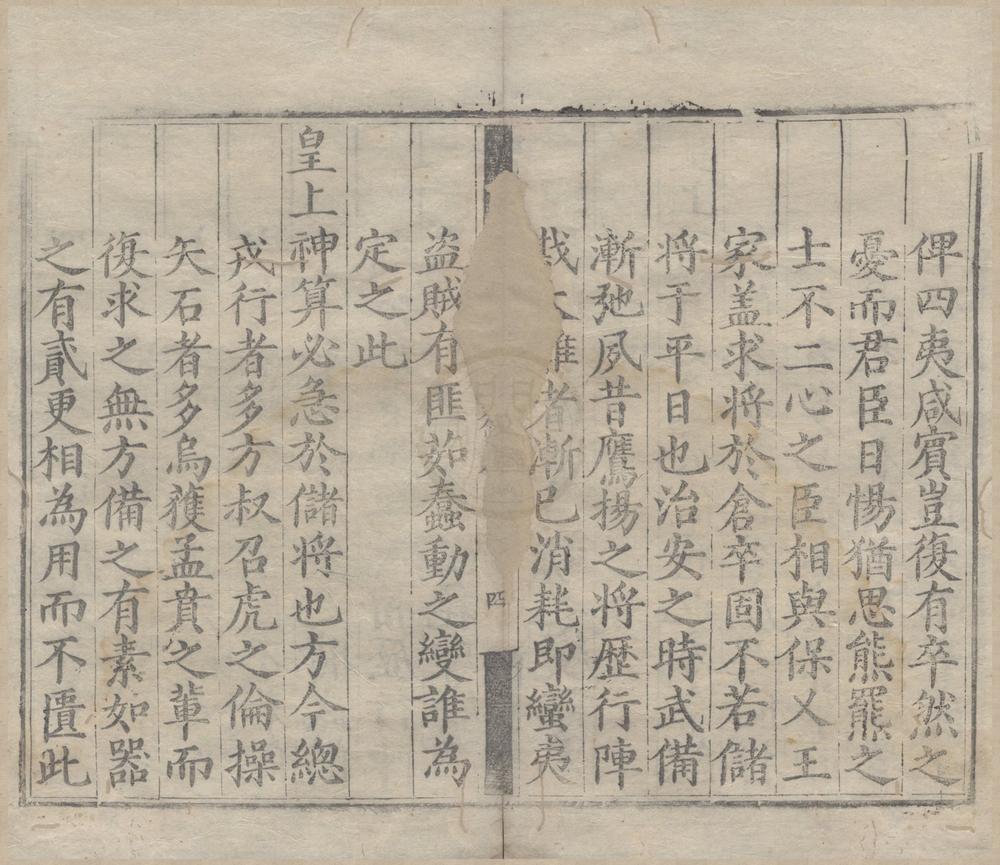 俾四夷咸賓豈復有卒然之
憂而君臣日惕猶思熊羆之
士不二心之臣相與保乂王
家盖求将於倉卒固不若儲
将于平日也治安之時武備
漸弛夙昔鷹揚之将歴行陣
者漸已消耗即蠻夷
四
盗賊有匪茹蠢動之變誰為
定之此
皇上神算必急於儲将也方今總
戎行者多方叔召虎之倫操
矢石者多烏獲孟賁之軰而
復求之無方備之有素如器
之有貳更相為用而不匱此